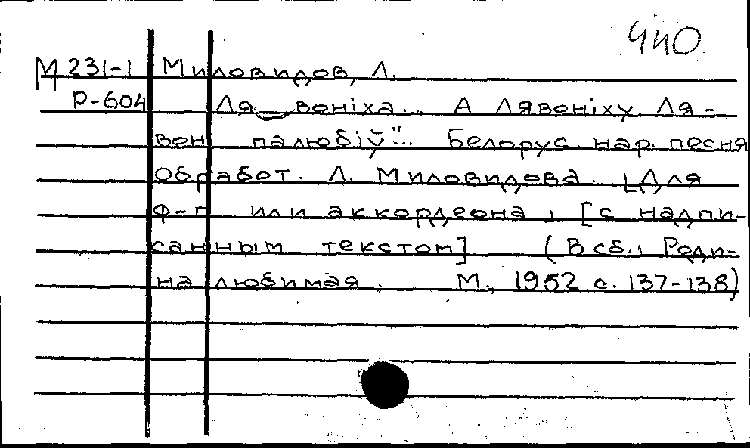 440
М 231-1 Миловидов, Л.
Р-604 Ля‿воніха... А Лявоніху Ля-
вон палюбіў"... Белорус. нар. песня
Обработ. Л. Миловидова. [Для
ф-п или аккордеона, [с надпи-
санным текстом] (В сб.: Роди-
на любимая. М., 1952 с. 137-138)